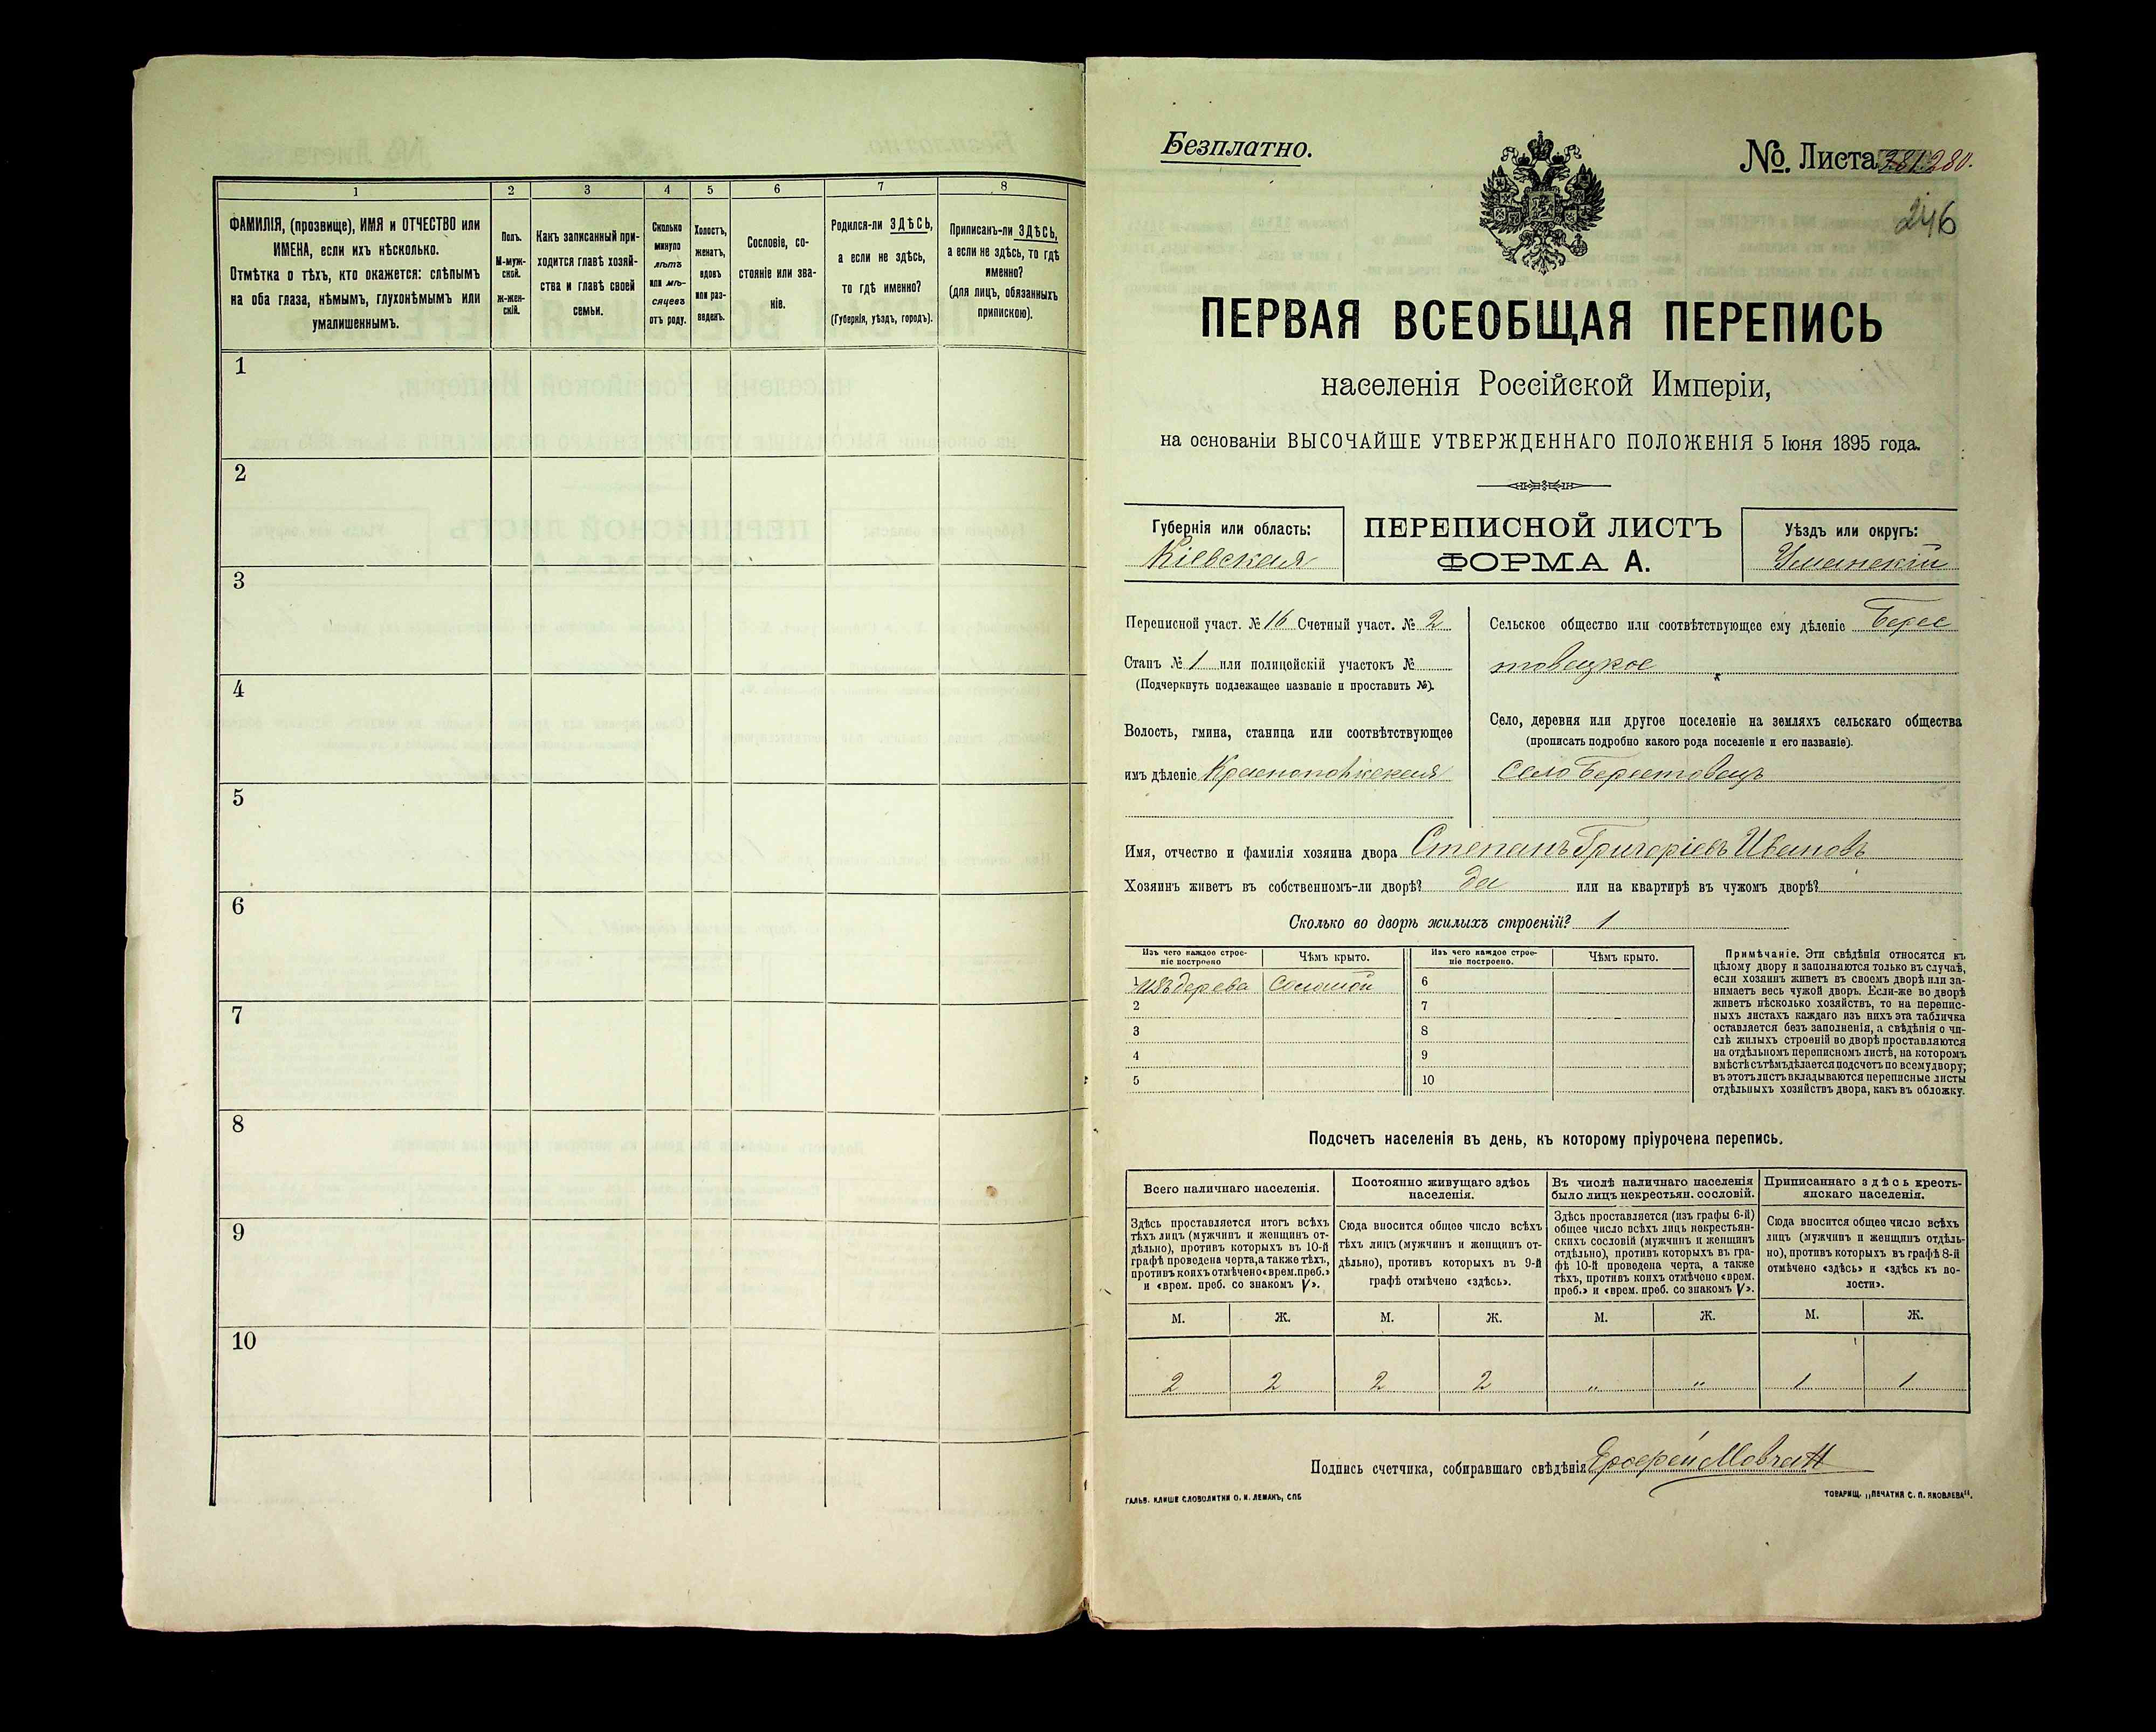 1
2
3
4
5
6
7
8
ФАМИЛІЯ, (прозвище), ИМЯ и ОТЧЕСТВО или
ИМЕНА, если ихъ нѣсколько.
Отмѣтка о тѣхъ, кто окажется: слѣпымъ
на оба глаза, нѣмымъ, глухонѣмымъ или
умалишеннымъ.
Полъ.
М-муж-
ской.
ж-жен-
скій.
Какъ записанный при-
ходится главѣ хозяй-
ства и главѣ своей
семьи.
Сколько
минуло
лѣтъ
или мѣ-
сяцевъ
отъ роду.
Холостъ,
женатъ,
вдовъ
или раз-
веденъ.
Сословіе, со-
стояніе или зва-
ніе.
Родился-ли ЗДѢСЬ,
а если не здѣсь,
то гдѣ именно?
(Губернія, уѣздъ, городъ).
Приписанъ-ли ЗДѢСЬ,
а если не здѣсь, то гдѣ
именно?
(для лицъ, обязанныхъ
припискою).
1
2
3
4
5
6
7
8
9
10
Безплатно.
№. Листа 281 280.
246
ПЕРВАЯ ВСЕОБЩАЯ ПЕРЕПИСЬ
населенія Россійской Имперіи,
на основаніи ВЫСОЧАЙШЕ УТВЕРЖДЕННАГО ПОЛОЖЕНІЯ 5 Іюня 1895 года.
Губернія или область:
Кіевская
ПЕРЕПИСНОЙ ЛИСТЪ
ФОРМА А.
Уѣздъ или округъ:
Уманскій
Переписной участ. № 16 Счетный участ. № 2
Станъ № 1 или полицейскій участокъ №
(Подчеркнуть подлежащее названіе и проставить №).
Волость, гмина, станица или соотвѣтствующее
имъ дѣленіе
Сельское общество или соотвѣтствующее ему дѣленіе Берес
товецкое
Село, деревня или другое поселеніе на земляхъ сельскаго общества
(прописать подробно какого рода поселеніе и его названіе).
Село Берестовецъ
Имя, отчество и фамилія хозяина двора Степанъ Григоріевъ Ивановъ
Хозяинъ живетъ въ собственномъ-ли дворѣ? да или на квартирѣ въ чужомъ дворѣ?
Сколько во дворѣ жилыхъ строеній? 1
Изъ чего каждое строе-
ніе построено
Чѣмъ крыто.
Изъ чего каждое строе-
ніе построено.
Чѣмъ крыто.
1 изъ дерева Соломой
2
3
4
5
6
7
8
9
10
Примѣчаніе. Эти свѣдѣнія относятся къ
цѣлому двору и заполняются только въ случаѣ,
если хозяинъ живетъ въ своемъ дворѣ или за-
нимаетъ весь чужой дворъ. Если-же во дворѣ
живетъ нѣсколько хозяйствъ, то на перепис-
ныхъ листахъ каждаго изъ нихъ эта табличка
оставляется безъ заполненія, а свѣдѣнія о чи-
слѣ жилыхъ строеній во дворѣ проставляются
на отдѣльномъ переписномъ листѣ, на которомъ
вмѣстѣ съ тѣмъ дѣлается подсчетъ по всему двору;
въ этотъ листъ вкладываются переписные листы
отдѣльныхъ хозяйствъ двора, какъ въ обложку.
Подсчетъ населенія въ день, къ которому пріурочена перепись.
Всего наличнаго населенія.
Постоянно живущаго здѣсь
населенія.
Въ числѣ наличнаго населенія
было лицъ некрестьян. сословій.
Приписаннаго здѣсь кресть-
янскаго населенія.
Здѣсь проставляется итогъ всѣхъ
тѣхъ лицъ (мужчинъ и женщинъ от-
дѣльно), противъ которыхъ въ 10-й
графѣ проведена черта, а также тѣхъ,
противъ коихъ отмѣчено «врем. преб.»
и «врем. преб. со знакомъ V».
Сюда вносится общее число всѣхъ
тѣхъ лицъ (мужчинъ и женщинъ от-
дѣльно), противъ которыхъ въ 9-й
графѣ отмѣчено «здѣсь».
Здѣсь проставляется (изъ графы 6-й)
общее число всѣхъ лицъ некрестьян-
скихъ сословій (мужчинъ и женщинъ
отдѣльно), противъ которыхъ въ гра-
фѣ 10-й проведена черта, а также
тѣхъ, противъ коихъ отмѣчено «врем.
преб.» и «врем. преб. со знакомъ V».
Сюда вносится общее число всѣхъ
лицъ (мужчинъ и женщинъ отдѣль-
но), противъ которыхъ въ графѣ 8-й
отмѣчено «здѣсь» и «здѣсь къ во-
лости».
М. Ж. М. Ж. М. Ж. М. Ж.
2 2 2 2 " " 1 1
Подпись счетчика, собиравшаго свѣдѣнія
ГАЛЬВ. КЛИШЕ СЛОВОЛИТНИ О. И. ЛЕМАНЪ, СПБ
ТОВАРИЩ. „ПЕЧАТНЯ С. П. ЯКОВЛЕВА".